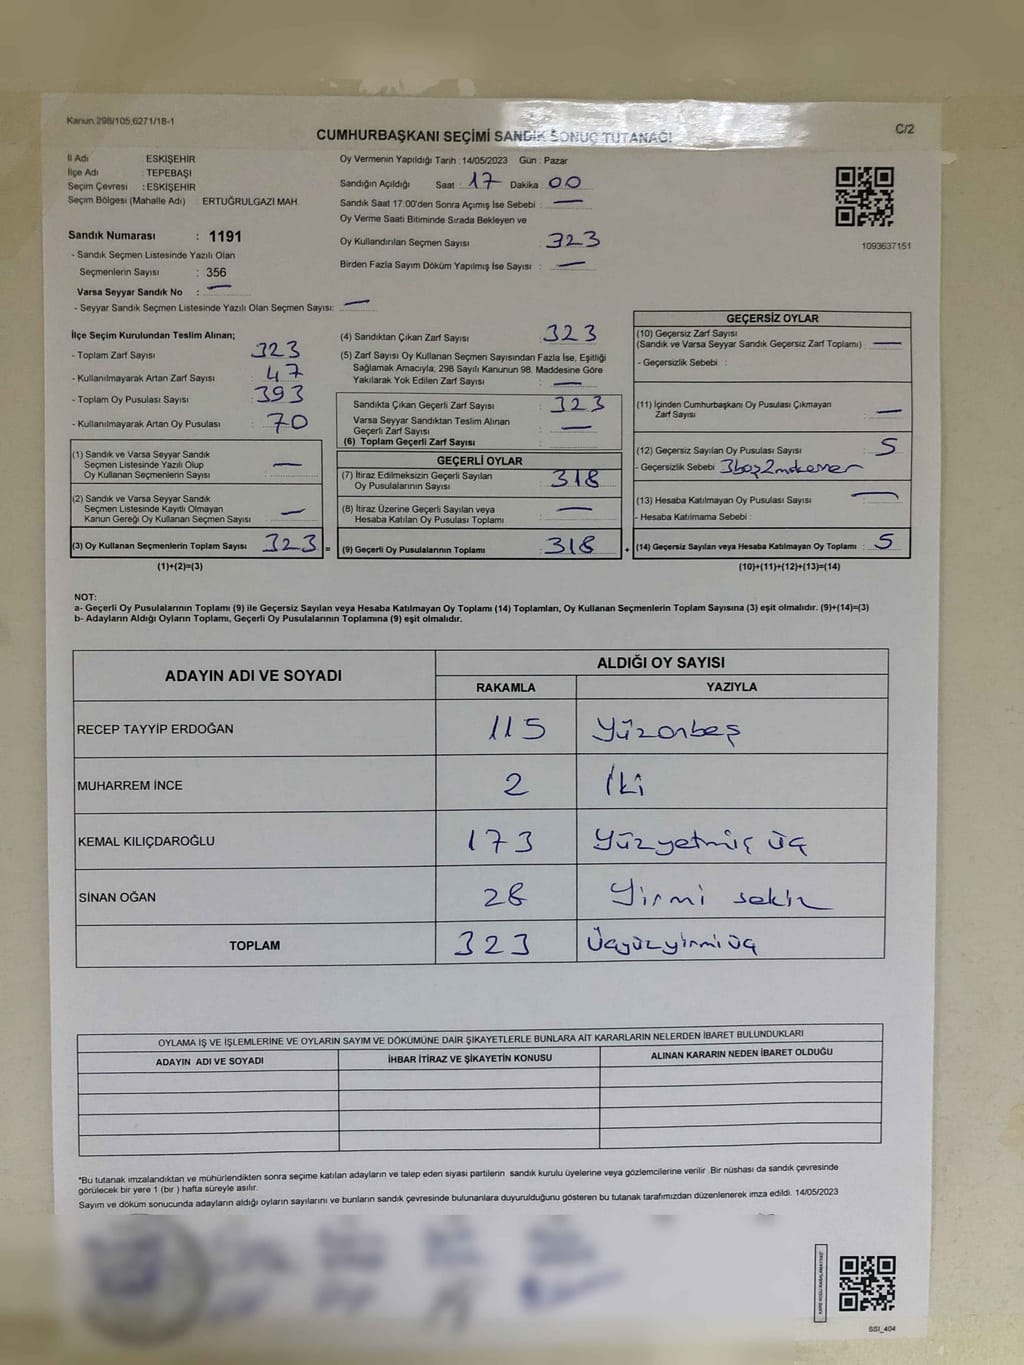 Kanun 298/105,6271/18-1
C/2
CUMHURBAŞKANI SEÇİMİ SANDIK SONUÇ TUTANAĞI
İl Adı : ESKİŞEHİR
İlçe Adı : TEPEBAŞI
Seçim Çevresi : ESKİŞEHİR
Seçim Bölgesi (Mahalle Adı) : ERTUĞRULGAZİ MAH.
Sandık Numarası : 1191
- Sandık Seçmen Listesinde Yazılı Olan
Seçmenlerin Sayısı : 356
Varsa Seyyar Sandık No : —
- Seyyar Sandık Seçmen Listesinde Yazılı Olan Seçmen Sayısı: —
Oy Vermenin Yapıldığı Tarih : 14/05/2023 Gün : Pazar
Sandığın Açıldığı Saat : 17 Dakika : 00
Sandık Saat 17:00'den Sonra Açımış İse Sebebi : —
Oy Verme Saati Bitiminde Sırada Bekleyen ve
Oy Kullandırılan Seçmen Sayısı : 323
Birden Fazla Sayım Döküm Yapılmış İse Sayısı : —
1093637151
İlçe Seçim Kurulundan Teslim Alınan;
- Toplam Zarf Sayısı : 323
- Kullanılmayarak Artan Zarf Sayısı : 47
- Toplam Oy Pusulası Sayısı : 393
- Kullanılmayarak Artan Oy Pusulası : 70
(1) Sandık ve Varsa Seyyar Sandık
Seçmen Listesinde Yazılı Olup
Oy Kullanan Seçmenlerin Sayısı : —
(2) Sandık ve Varsa Seyyar Sandık
Seçmen Listesinde Kayıtlı Olmayan
Kanun Gereği Oy Kullanan Seçmen Sayısı : —
(3) Oy Kullanan Seçmenlerin Toplam Sayısı : 323 =
(1)+(2)=(3)
(4) Sandıktan Çıkan Zarf Sayısı : 323
(5) Zarf Sayısı Oy Kullanan Seçmen Sayısından Fazla İse, Eşitliği
Sağlamak Amacıyla; 298 Sayılı Kanunun 98. Maddesine Göre
Yakılarak Yok Edilen Zarf Sayısı : —
Sandıkta Çıkan Geçerli Zarf Sayısı : 323
Varsa Seyyar Sandıktan Teslim Alınan
Geçerli Zarf Sayısı : —
(6) Toplam Geçerli Zarf Sayısı :
GEÇERLİ OYLAR
(7) İtiraz Edilmeksizin Geçerli Sayılan
Oy Pusulalarının Sayısı : 318
(8) İtiraz Üzerine Geçerli Sayılan veya
Hesaba Katılan Oy Pusulası Toplamı : —
(9) Geçerli Oy Pusulalarının Toplamı : 318 +
GEÇERSİZ OYLAR
(10) Geçersiz Zarf Sayısı
(Sandık ve Varsa Seyyar Sandık Geçersiz Zarf Toplamı) : —
- Geçersizlik Sebebi :
(11) İçinden Cumhurbaşkanı Oy Pusulası Çıkmayan
Zarf Sayısı : —
(12) Geçersiz Sayılan Oy Pusulası Sayısı : 5
- Geçersizlik Sebebi : 3 boş 2
(13) Hesaba Katılmayan Oy Pusulası Sayısı : —
- Hesaba Katılmama Sebebi :
(14) Geçersiz Sayılan veya Hesaba Katılmayan Oy Toplamı : 5
(10)+(11)+(12)+(13)=(14)
NOT:
a- Geçerli Oy Pusulalarının Toplamı (9) ile Geçersiz Sayılan veya Hesaba Katılmayan Oy Toplamı (14) Toplamları, Oy Kullanan Seçmenlerin Toplam Sayısına (3) eşit olmalıdır. (9)+(14)=(3)
b- Adayların Aldığı Oyların Toplamı, Geçerli Oy Pusulalarının Toplamına (9) eşit olmalıdır.
ADAYIN ADI VE SOYADI ALDIĞI OY SAYISI
RAKAMLA YAZIYLA
RECEP TAYYİP ERDOĞAN 115 Yüzonbeş
MUHARREM İNCE 2 İki
KEMAL KILIÇDAROĞLU 173 Yüzyetmiş üç
SİNAN OĞAN 28 Yirmi sekiz
TOPLAM 323 Üçyüzyirmiüç
OYLAMA İŞ VE İŞLEMLERİNE VE OYLARIN SAYIM VE DÖKÜMÜNE DAİR ŞİKAYETLERLE BUNLARA AİT KARARLARIN NELERDEN İBARET BULUNDUKLARI
ADAYIN ADI VE SOYADI İHBAR İTİRAZ VE ŞİKAYETİN KONUSU ALINAN KARARIN NEDEN İBARET OLDUĞU
*Bu tutanak imzalandıktan ve mühürlendikten sonra seçime katılan adayların ve talep eden siyasi partilerin sandık kurulu üyelerine veya gözlemcilerine verilir .Bir nüshası da sandık çevresinde
görülecek bir yere 1 (bir ) hafta süreyle asılır.
Sayım ve döküm sonucunda adayların aldığı oyların sayılarını ve bunların sandık çevresinde bulunanlara duyurulduğunu gösteren bu tutanak tarafımızdan düzenlenerek imza edildi. 14/05/2023
SSI_404